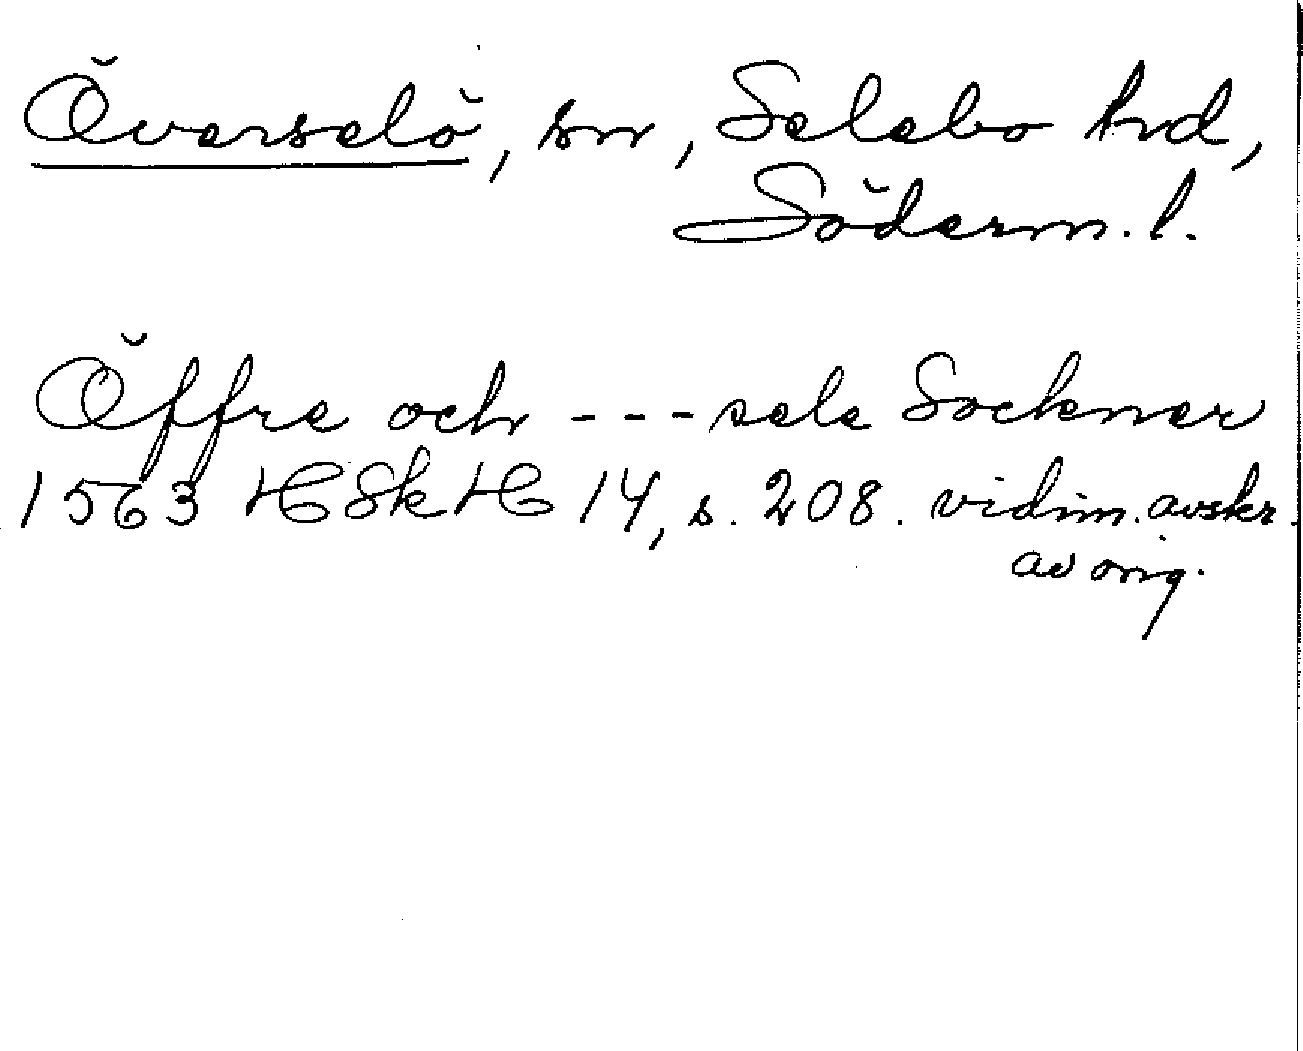 Överselö, sn, Selebo hrd,
Söderm. l.
Öffre och - - - sele Sockner
1563 HSkH 14, s. 208. vidim. avskr.
av orig.